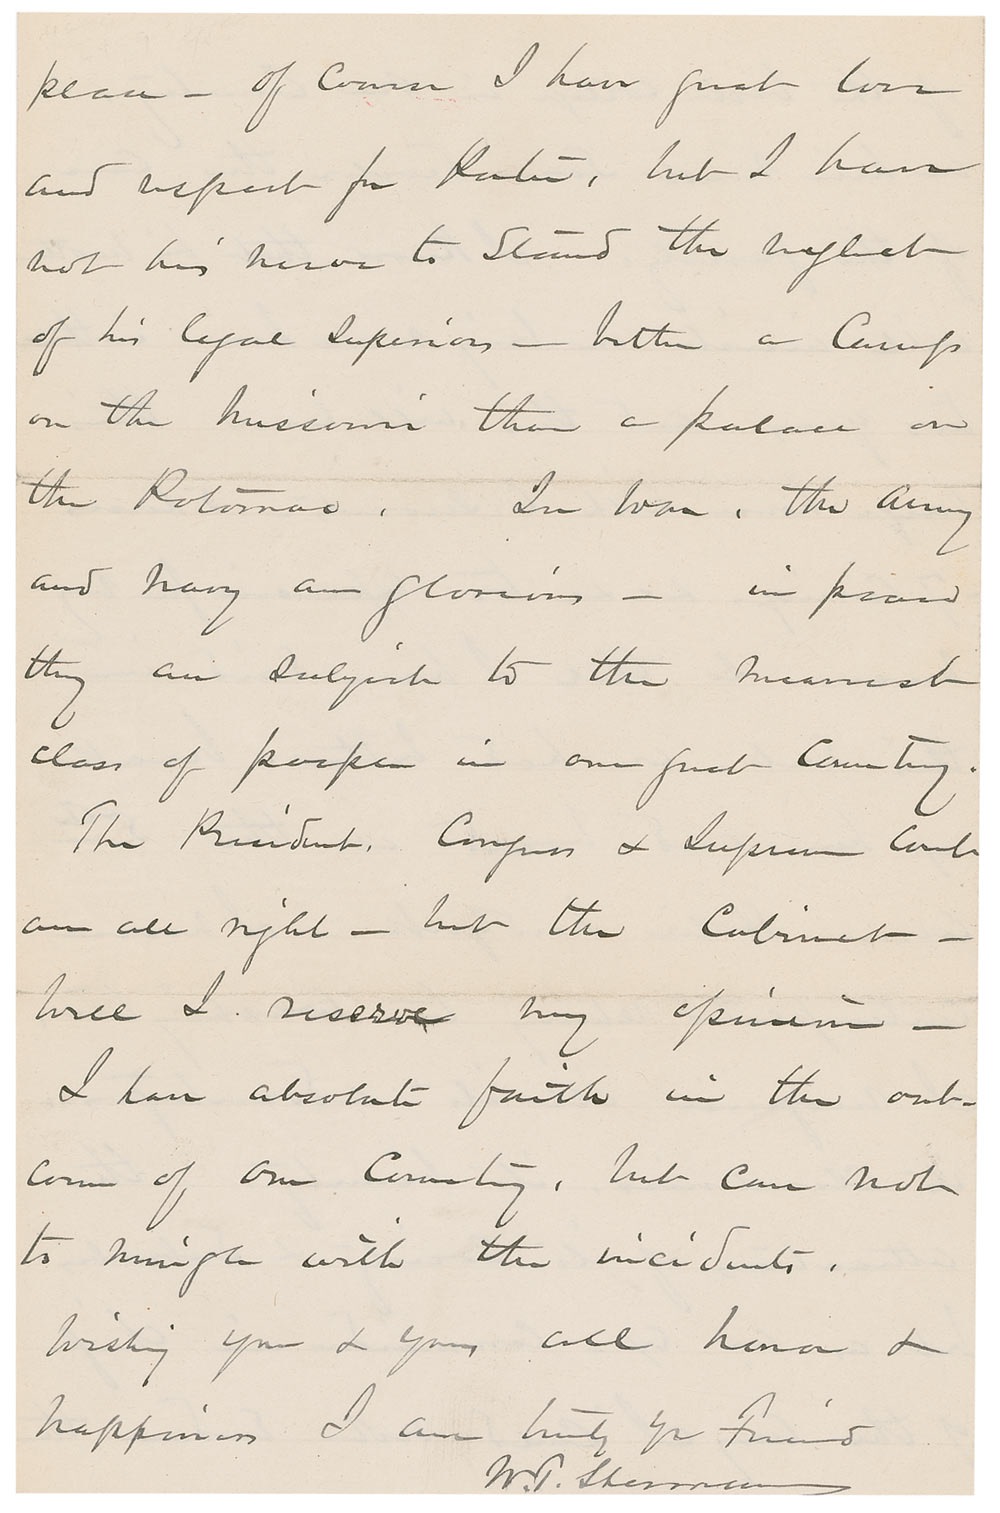 peace — of course I have great love
and respect for Porter, but I have
not his nerve to stand the neglect
of his legal superiors — better a Camp
on the Missouri than a palace on
the Potomac. In War, the army
and navy are glorious — in peace
they are subject to the meanest
class of people in our great Country.
The President, Congress & Supreme Court
are all right — but the Cabinet —
well I reserve my opinion —
I have absolute faith in the out-
come of our Country, but care not
to mingle with the incidents.
Wishing you & yours all honor &
happiness I am truly yr Friend
W.T. Sherman